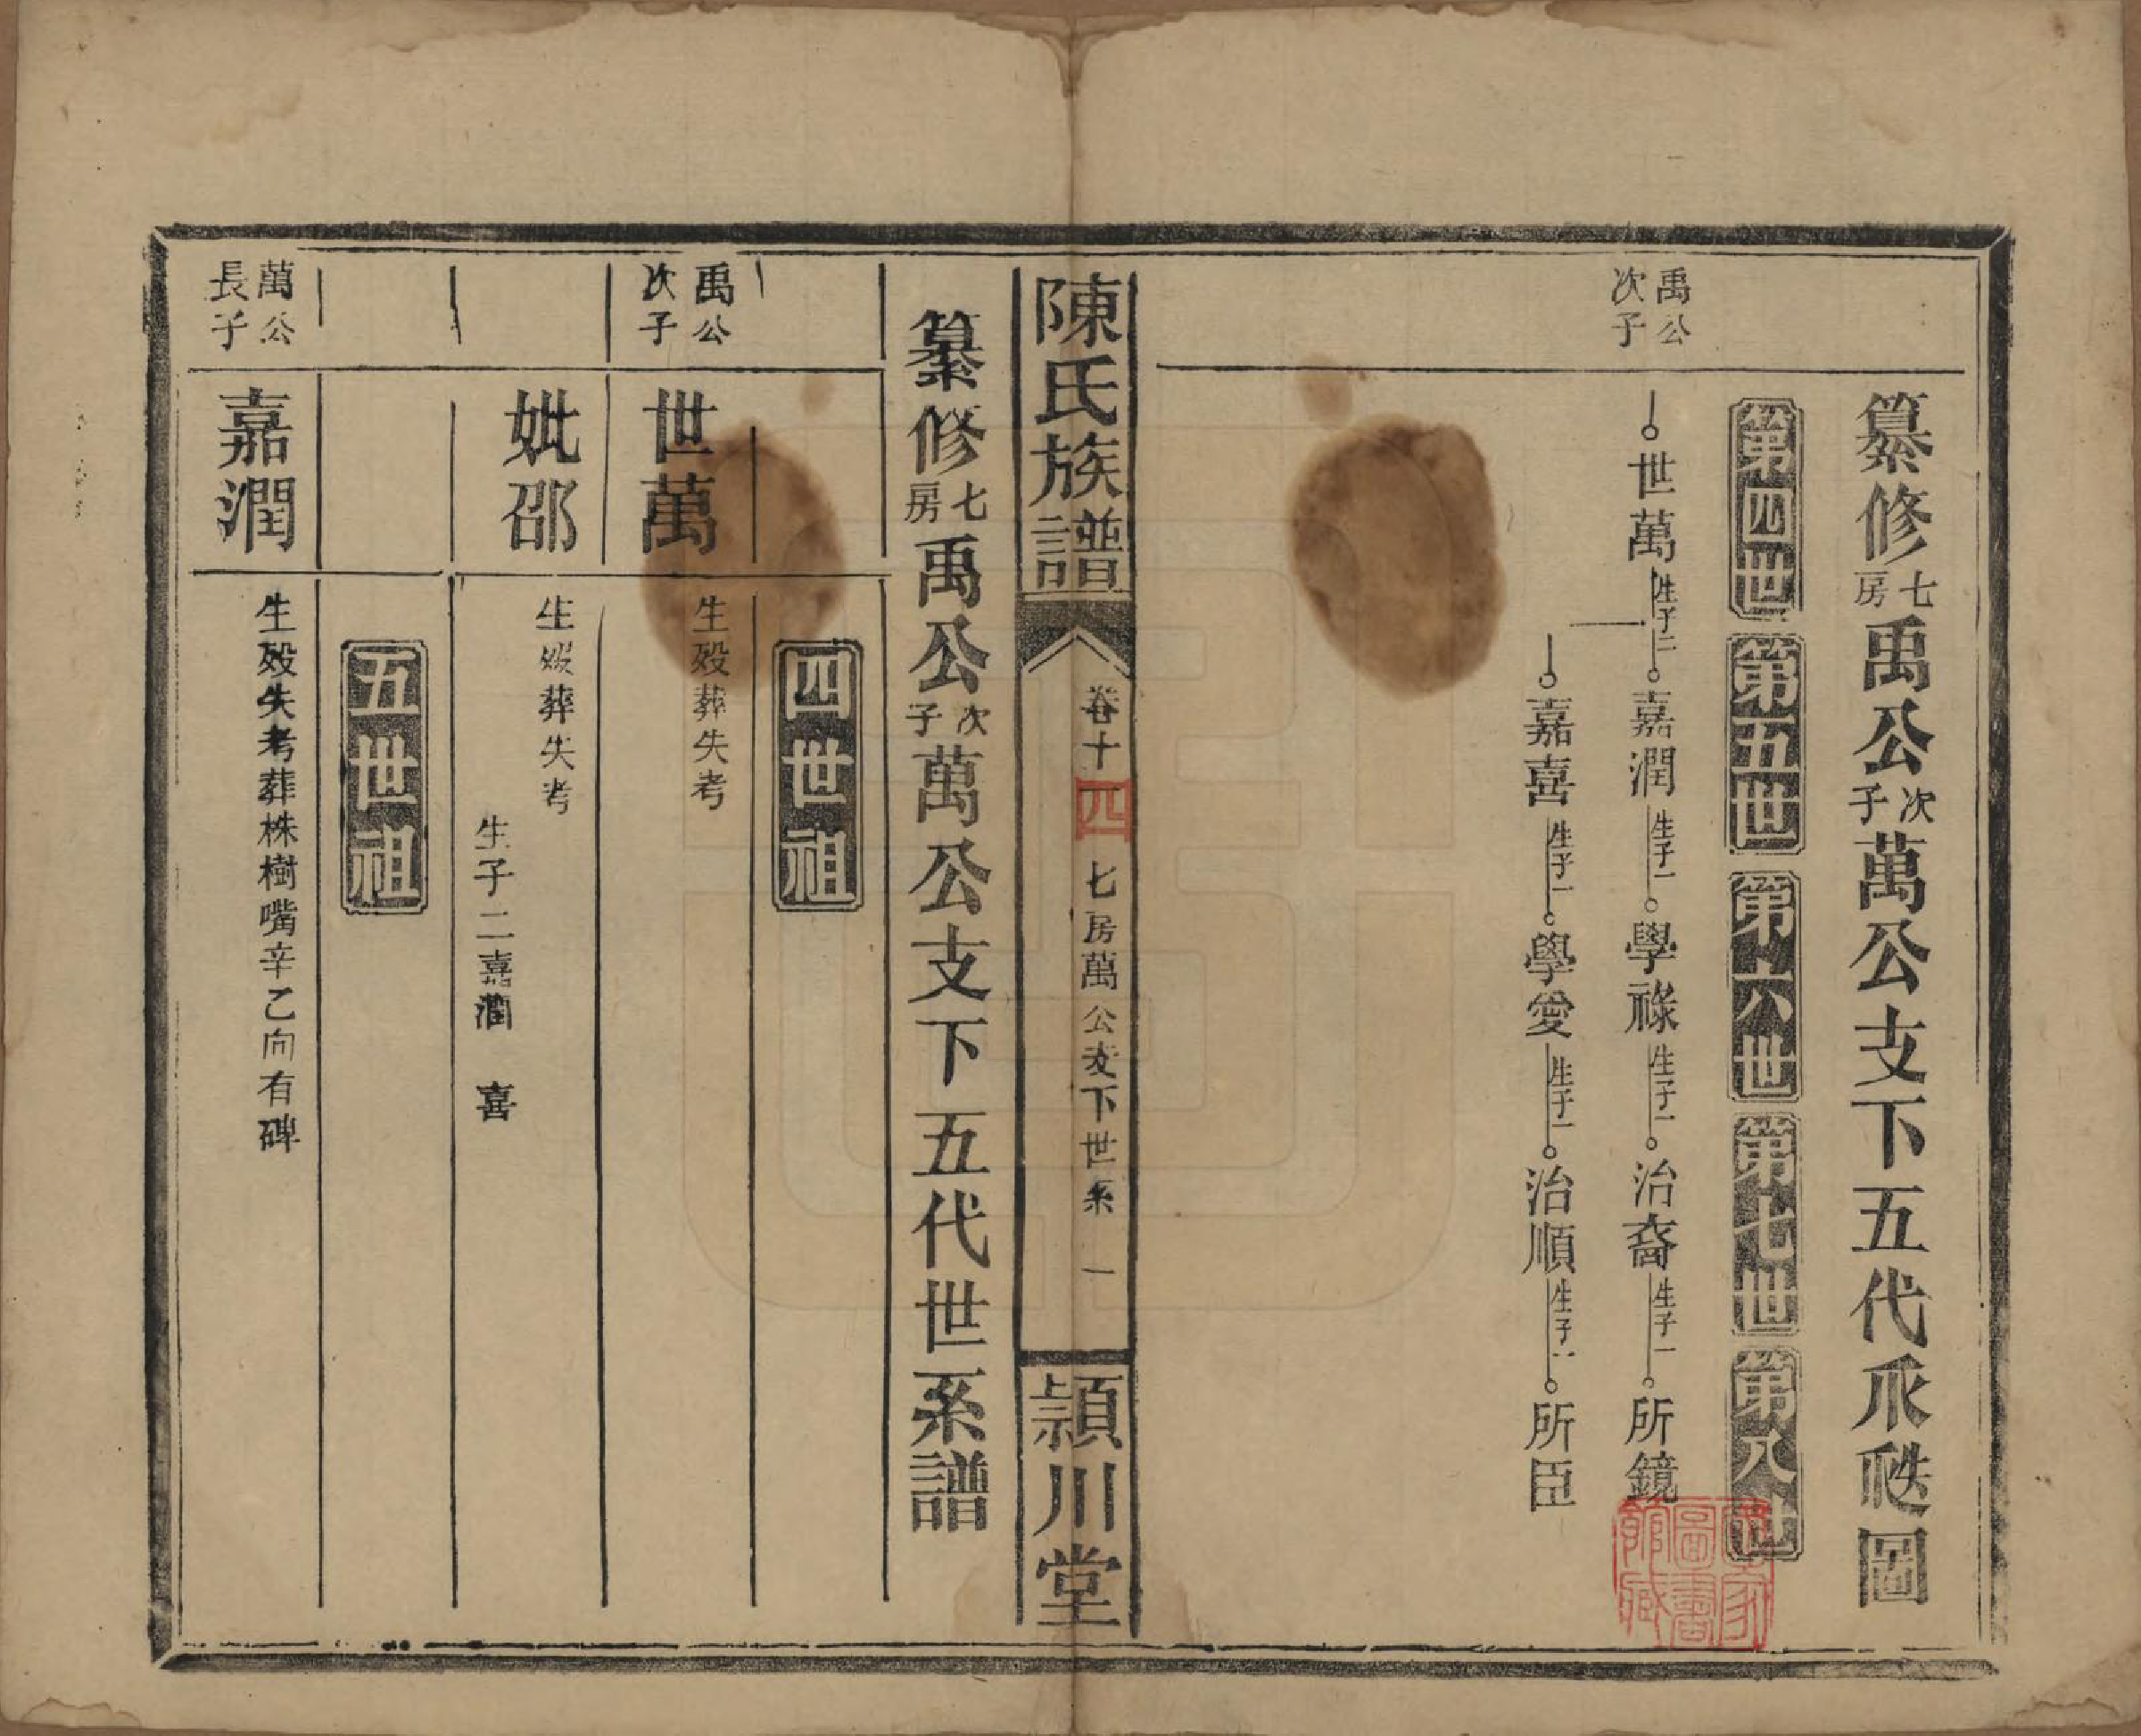 纂修七房禹公次子萬公支下五代𠂢圖
第四世 第五世 第六世 第七世 第八世
禹公次子
世萬 生子二 嘉潤 生子一 學祿 生子一 治裔 生子一 所鏡
嘉喜 生子一 學愛 生子一 治順 生子一 所臣
國家圖書館藏
陳氏族譜 卷十四 七房萬公支下世系 一 頴川堂
纂修七房禹公次子萬公支下五代世系譜
四世祖
禹公次子
世萬 生歿葬失考
妣邵 生歿葬失考
生子二嘉潤 喜
五世祖
萬公長子
嘉潤 生歿失考葬株樹嘴辛乙向有碑